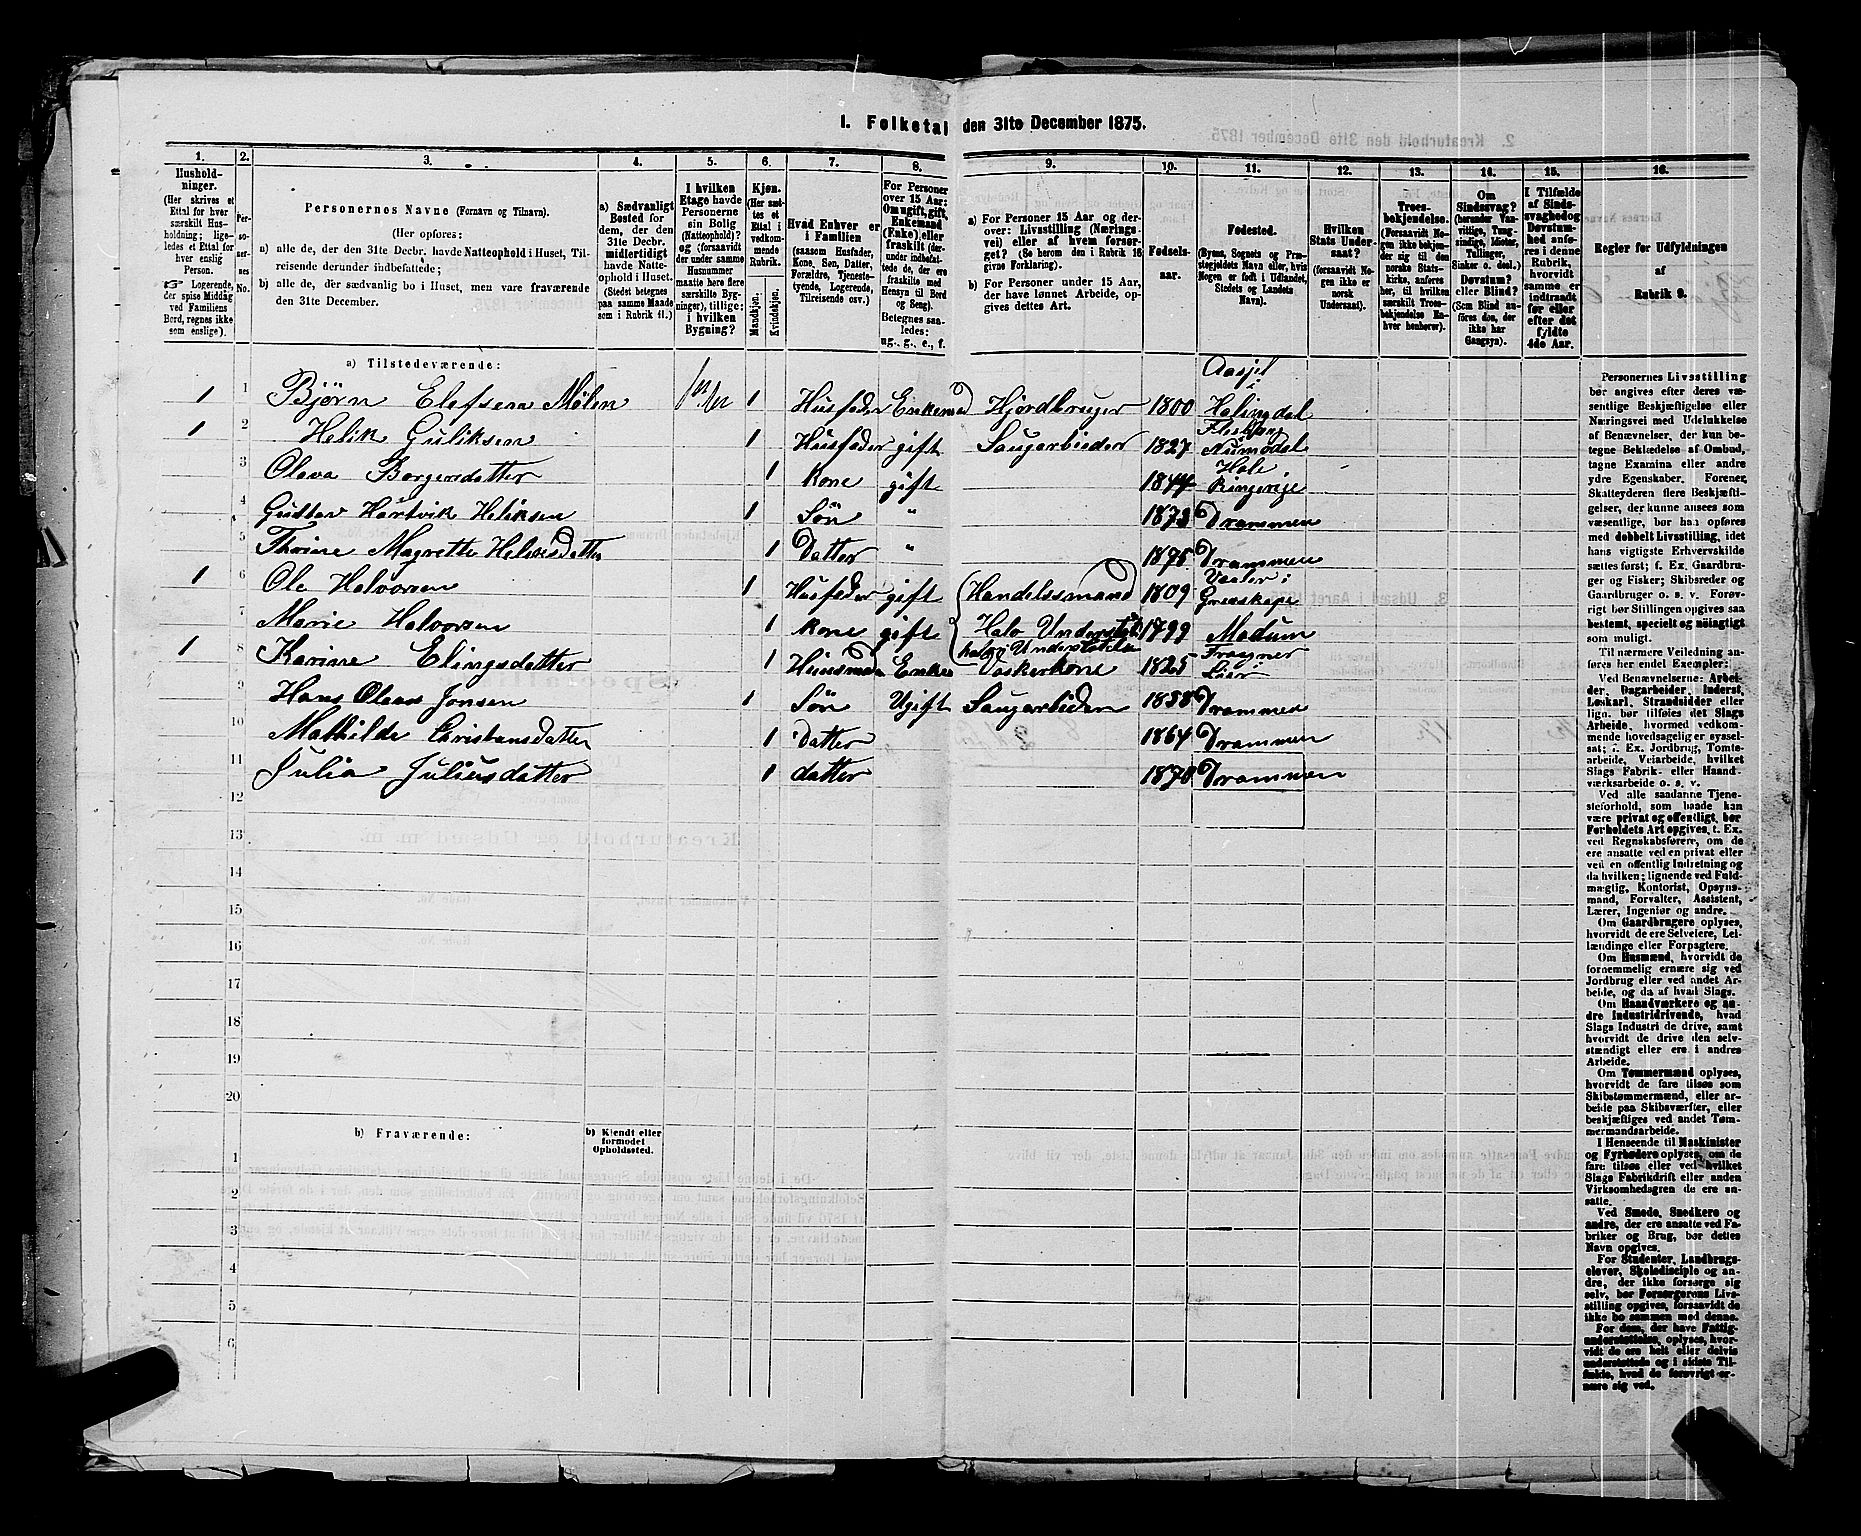 1. Folketal den 31te December 1875.
1. 2. 3. 4. 5. 6. 7. 8. 9. 10. 11. 12. 13. 14. 15. 16.
Husholdninger.
(Her skrives et
Ettal for hver
særskilt Husholdning; ligeledes
et Ettal for
hver enslig
Person.
Logerende,
der spise Middag
ved Familiens
Bord, regnes ikke
som enslige).
Personernes No.
Personernes Navne (Fornavn og Tilnavn).
(Her opføres:
a) alle de, der den 31te Decbr. havde Natteophold i Huset, Tilreisende derunder indbefattede;
b) alle de, der sædvanlig bo i Huset, men vare fraværende
den 31te December.
a) Sædvanligt
Bosted for
dem, der den
31te Decbr.
midlertidigt
havde Natteophold
i Huset.
(Stedet betegnes
paa samme Maade
som i Rubrik 11.)
I hvilken
Etage havde
Personerne
sin Bolig
(Natteophold)?
og (forsaavidt
der under samme
Husnummer
maatte høre flere
særskilte Bygninger),
tillige:
i hvilken
Bygning?
Kjøn.
(Her sættes
et
Ettal i
vedkommende
Rubrik.
Mandkjøn.
Kvindekjøn.
Hvad Enhver er
i Familien
(saasom Husfader,
Kone, Søn, Datter,
Forældre, Tjenestetyende,
Logerende,
Tilreisende osv.)
For Personer
over 15 Aar:
Om ugift, gift,
Enkemand
(Enke) eller
fraskilt (derunder
indbefattede
de, der ere
fraseparerede med
Hensyn til Bord
og Seng).
Betegnes saaledes:
ug., g., e., f.
a) For Personer 15 Aar og derover:
Livsstilling (Næringsvei)
eller af hvem forsørget?
(Se herom den i Rubrik 16
givne Forklaring).
b) For Personer under 15 Aar,
der have lønnet Arbeide, opgives
dettes Art.
Fødselsaar.
Fødested.
(Byens, Sognets og Præstegjeldets
Navn eller, hvis
Nogen er født i Udlandet,
Stedets og Landets
Navn).
Hvilken
Stats Undersaat?
(forsaavidt Nogen
ikke er
norsk
Undersaat).
Troesbekjendelse.
(Forsaavidt Nogen
ikke bekjender
sig til den
norske Statskirke,
anføres
her, til hvilken
særskilt Troesbekjendelse
Enhver
henhører).
Om
Sindssvag?
(herunder Vanvittige,
Tungsindige,
Idioter,
Tullinger,
Sinker o. desl.)
Døvstum?
eller Blind?
(Som Blind anføres
den, der
ikke har
Gangsyn).
I Tilfælde
af Sindssvaghed
og
Døvstumhed
anføres
i denne
Rubrik,
hvorvidt
samme er
indtraadt
før eller
efter det
fyldte
4de Aar.
Regler for Udfyldningen
af
Rubrik 9.
a) Tilstedeværende:
1 1 Bjørn Elefsen Mølen 1 Husfader Enkemd Hjordbruger 1800 Aasjel i Halingdal
1 2 Helik Guliksen 1 Husfader gift Saugarbieder 1827 Flesberg Numedal
3 Olava Borgersdatter 1 Kone gift 1844 Hole Ringerige
4 Gustav Hartvik Heliksen 1 Søn " 1873 Drammen
5 Thrine Magrette Heliksdatter 1 Datter " 1875 Drammen
1 6 Ole Halvorsen 1 Husfader gift Handelsmand 1809
7 Marie Halvorsen 1 Kone gift 1799 Modum
1 8 Karine Elingsdatter 1 Enke Vaskerkone 1825 Lier
9 Hans Olaus Jonsen 1 Søn Ugift Saugarbieder 1858 Drammen
10 Mathilde Christiansdatter 1 Datter 1864 Drammen
11 Julia Juliusdatter 1 datter 1870 Drammen
12
13
14
15
16
17
18
19
20
b) Fraværende:
b) Kjendt eller
formodet
Opholdssted.
1
2
3
4
5
6
Personernes Livsstilling
bør angives efter deres væsentlige
Beskjæftigelse eller
Næringsvei med Udelukkelse
af Benævnelser, der kun betegne
Beklædelse af Ombud,
tagne Examina eller andre
ydre Egenskaber. Forener
Skatteyderen flere Beskjæftigelser,
der kunne ansees som
væsentlige, bør han opføres
med dobbelt Livsstilling, idet
hans vigtigste Erhvervskilde
sættes først; f. Ex. Gaardbruger
og Fisker; Skibsreder og
Gaardbruger o. s. v. Forøvrigt
bør Stillingen opgives saa
bestemt, specielt og nøiagtigt
som muligt.
Til nærmere Veiledning anføres
her endel Exempler:
Ved Benævnelserne: Arbeider,
Dagarbeider, Inderst,
Løskarl, Strandsidder eller
lign. bør tilføies det Slags
Arbeide, hvormed vedkommende
hovedsagelig er sysselsat;
f. Ex. Jordbrug, Tomtearbeide,
Veiarbeide, hvilket
Slags Fabrik- eller Haandværksarbeide
o. s. v.
Ved alle saadanne Tjenesteforhold,
som baade kan
være privat og offentligt, bør
Forholdets Art opgives, t. Ex.
ved Regnskabsførere, om de
ere ansatte ved en privat eller
ved en offentlig Indretning og
da hvilken; lignende ved Fuldmægtig,
Kontorist, Opsynsmand,
Forvalter, Assistent,
Lærer, Ingeniør og andre.
Om Gaardbrugere oplyses,
hvorvidt de ere Selveiere, Leilændinge
eller Forpagtere.
Om Husmænd, hvorvidt de
fornemmelig ernære sig ved
Jordbrug eller ved andet Arbeide,
og da af hvad Slags.
Om Haandværkere og andre
Industridrivende, hvad
Slags Industri de drive, samt
hvorvidt de drive den selvstændigt
eller ere i andres
Arbeide.
Om Tømmermænd oplyses,
hvorvidt de fare tilsøs som
Skibstømmermænd, eller arbeide
paa Skibsværfter, eller
beskjæftiges ved andet Tømmermandsarbeide.
I Henseende til Maskinister
og Fyrbødere oplyses, om de
fare tilsøs eller ved hvilket
Slags Fabrikdrift eller anden
Virksomhedsgren de ere ansatte.
Ved Smede, Snedkere og
andre, der ere ansatte ved Fabriker
og Brug, bør dettes
Navn opgives.
For Studenter, Landbrugselever,
Skoledisciple og andre,
der ikke forsørge sig
selv, bør Forsørgerens Livsstilling
opgives, forsaavidt de
ikke bo sammen med denne.
For dem, der have Fattigunderstøttelse,
oplyses, hvorvidt
de ere helt eller delvis
understøttede og i sidste Tilfælde,
hvad de forøvrigt ernære
sig ved.